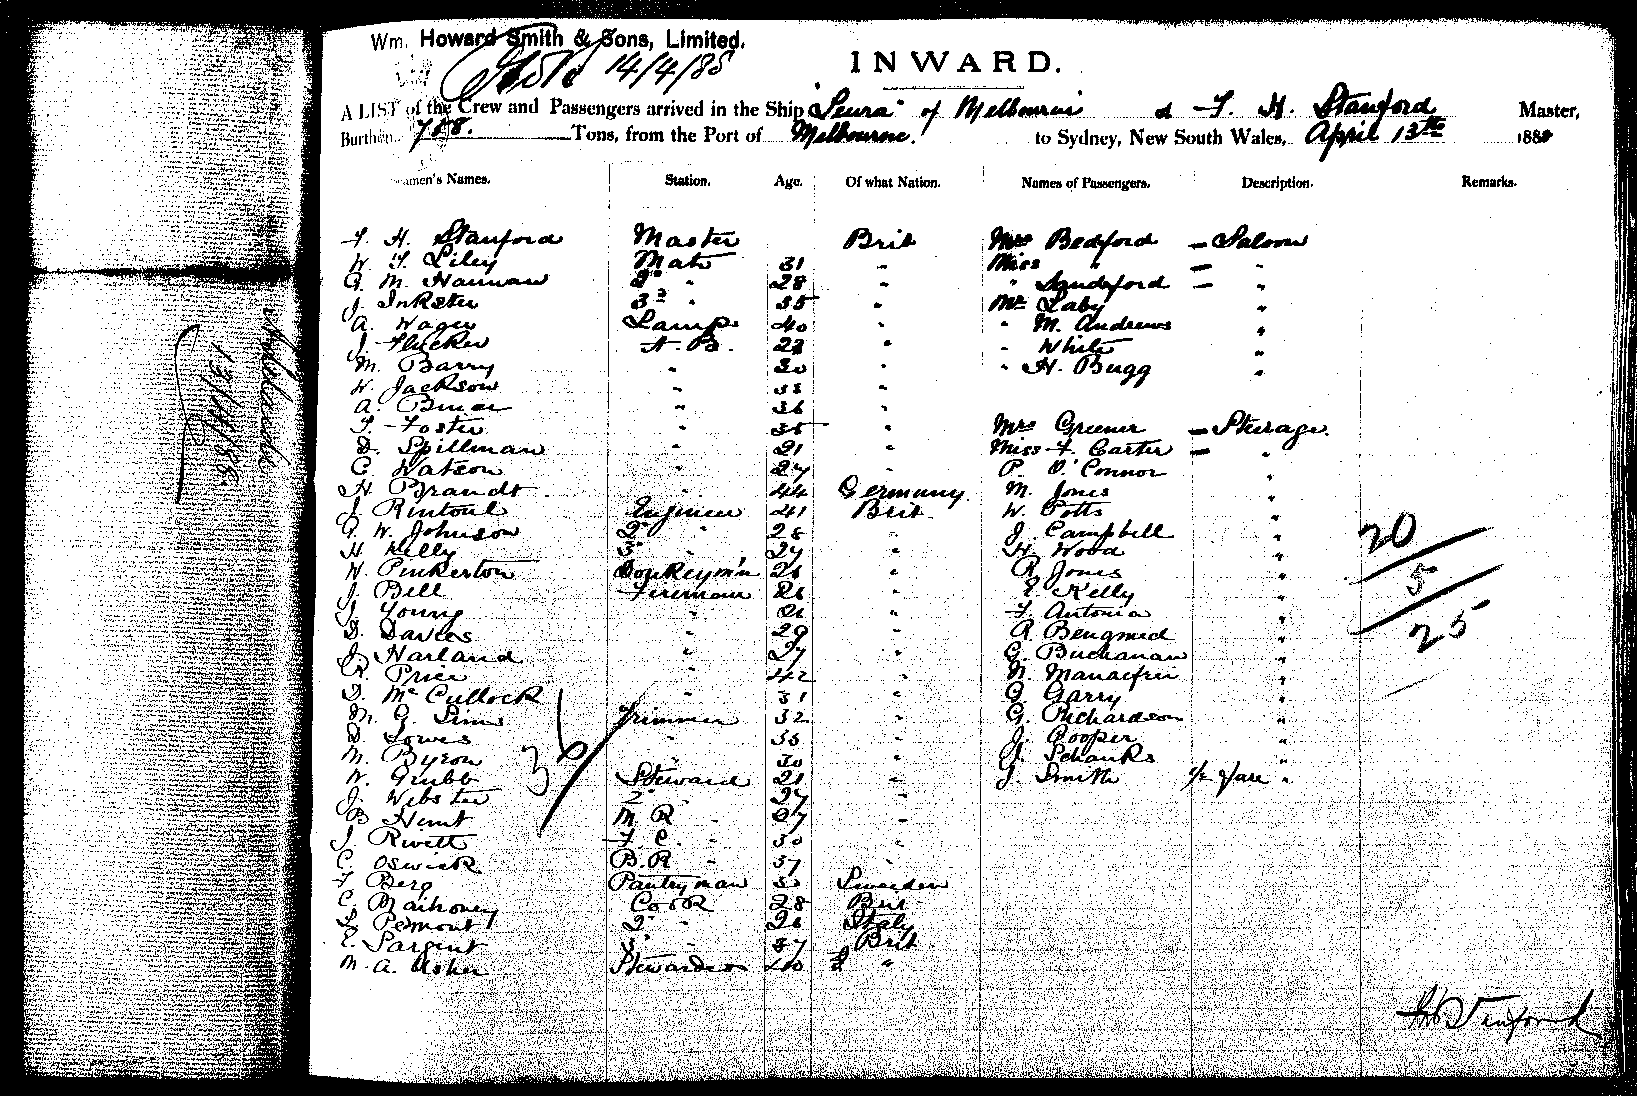 Wm. Howard Smith & Sons, Limited.
14/4/88
INWARD.
A LIST of the Crew and Passengers arrived in the Ship "Leura" of Melbourne F. H. Stanford Master,
Burthen 788. Tons, from the Port of Melbourne. to Sydney, New South Wales, April 13th 1888
Seamen's Names. Station. Age. Of what Nation. Names of Passengers. Description. Remarks.
F. H. Stanford Master Brit Mrs Bedford - Saloon
W. F. Liley Mate 31 " Miss " - "
G. M. Hannan 2nd " 28 " " Sandford - "
J. Inkster 3rd " 35 " Mr Laby "
A. Wager Lamps 40 " " M. Andrews "
J. Flucker A. B. 23 " " White "
M. Barry " 30 " " H. Bugg "
W. Jackson " 33 "
A. " 36 "
F. Foster " 35 " Mrs Greener - Steerage.
D. Spillman " 21 " Miss F. Carter - "
C. Watson " 27 " P. O'Connor "
H. Brandt " 44 Germany M. Jones "
J. Rintoul Engineer 41 Brit W. Potts "
G. W. Johnson 2nd " 28 " J. Campbell "
H. Kelly 3rd " 27 " H. Wood "
W. Pinkerton Donkeym'n 26 " R. Jones "
J. Bell Fireman 26 " E. Kelly "
J. Young " " F. Antonia "
D. Davies " 29 " R. "
J. Harland " 27 " G. Buchanan "
R. Price " 42 " N. "
D. McCullock " 31 " G. Garry "
M. G. Sim Trimmer 32 " G. Richardson "
D. Lowes " 35 " J. Cooper "
M. Byron " 30 " J. Schanks "
W. Grubb Steward 21 " J. Smith 1/2 fare "
J. Webster 2nd " 27 "
B. Hunt M. R " 27 "
J. Rivett F. C. " 30 "
C. Oswick B. R " 37 "
F. Berg Pantryman 30 Sweden
C. Mahoney Cook 28 Brit
L. Pemont 2nd " 26 Italy
E. Sargent 3rd " 37 Brit
M. A. Usher Stewardess 40 "
36
20
5
25
13/4/88